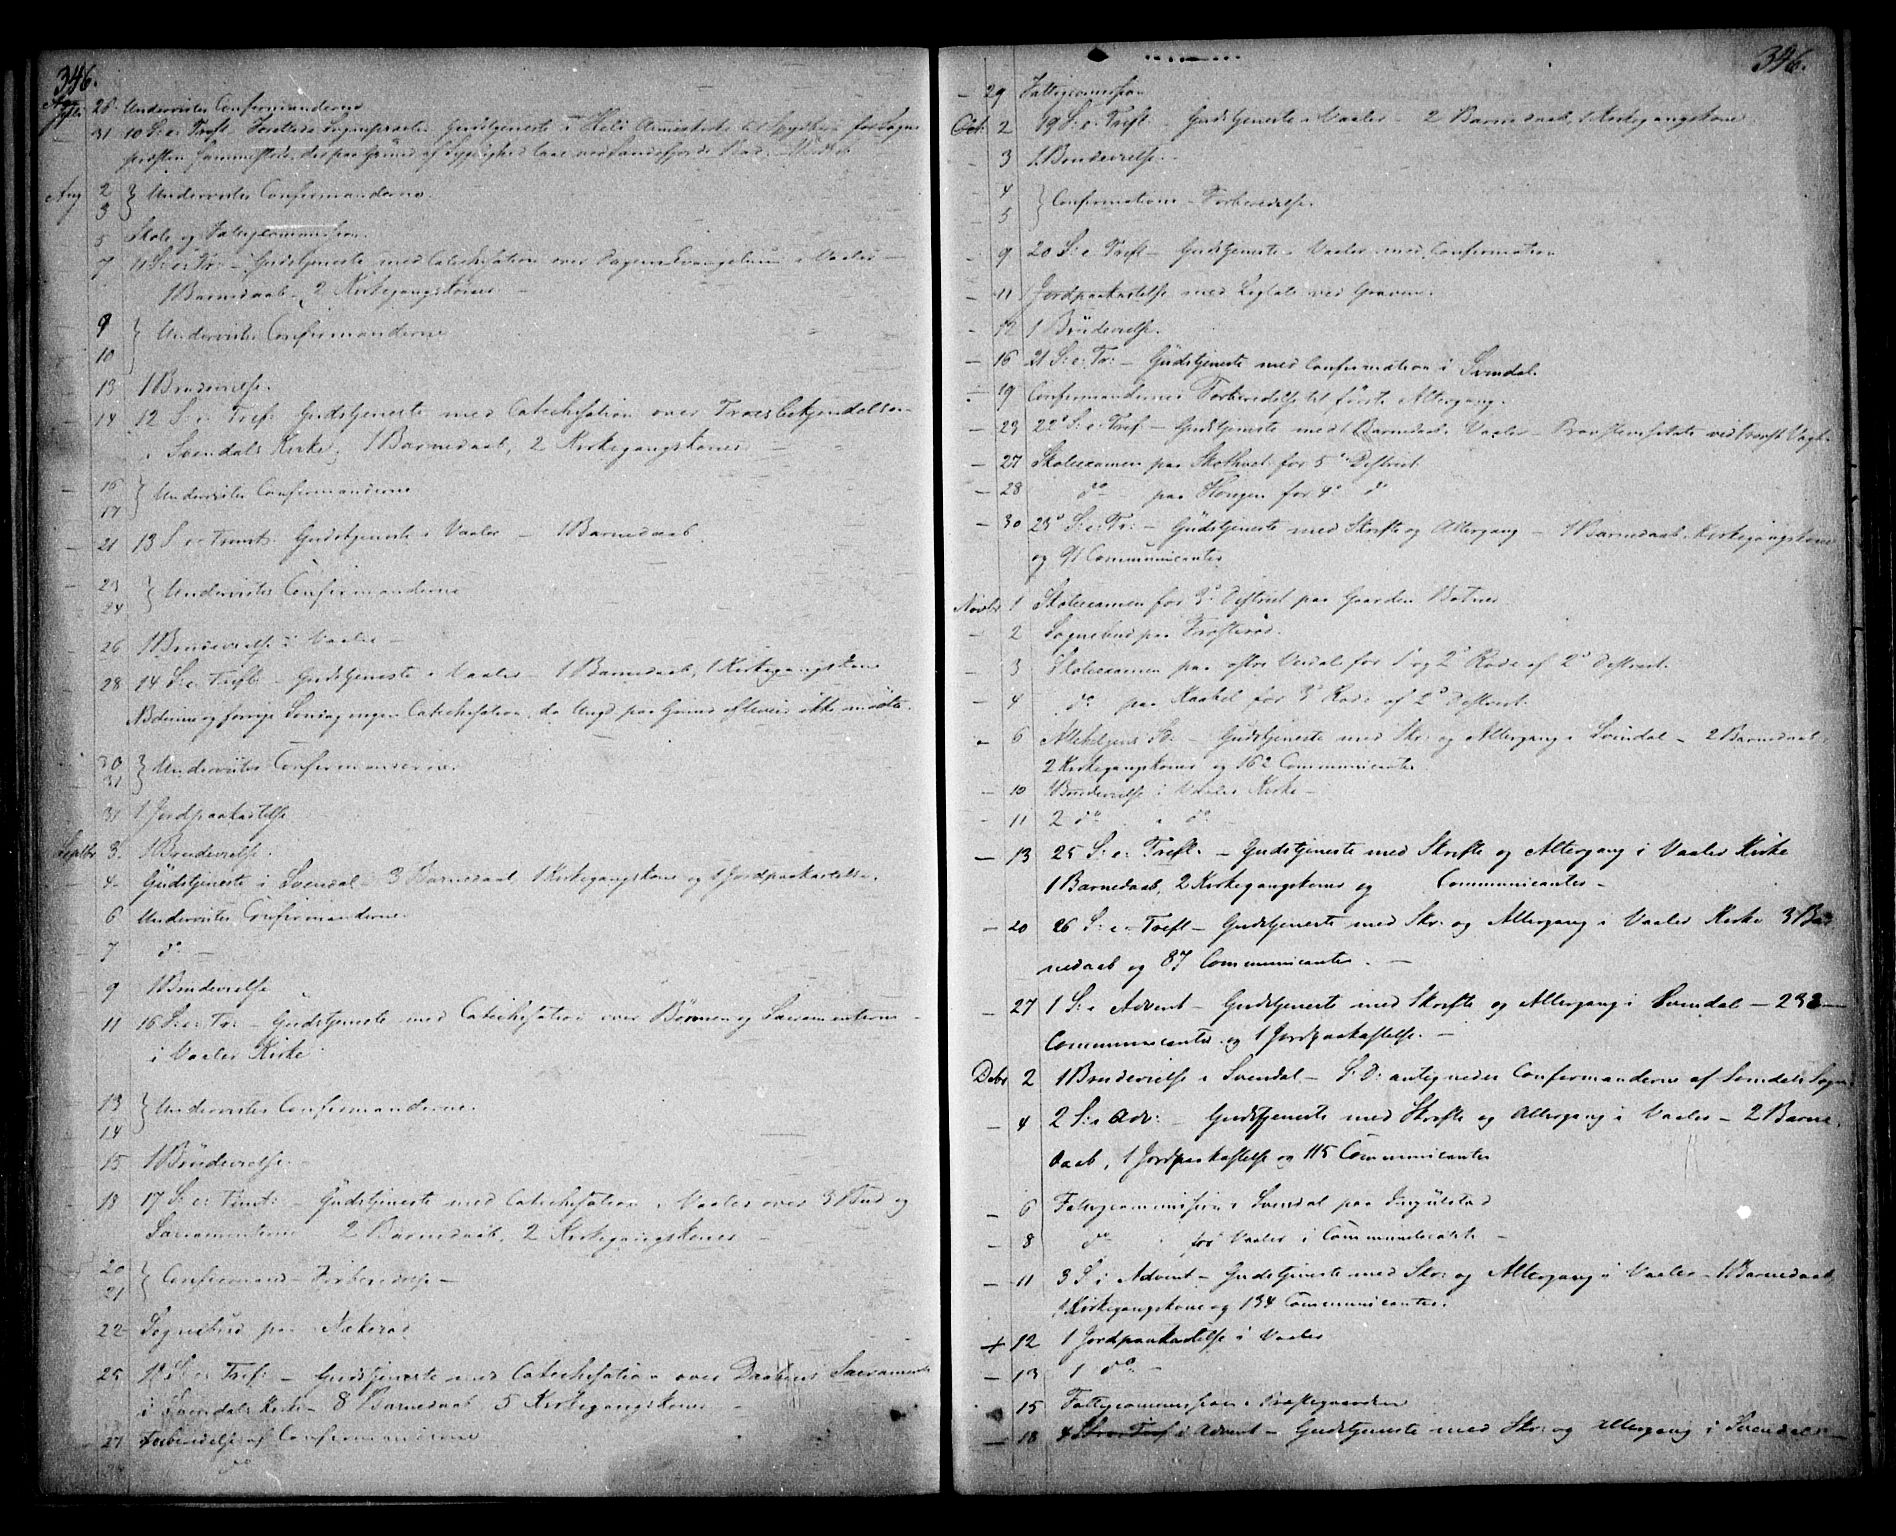 346.
Jul 28. Underviste Confirmanderne
31 10 S: e: Tref. Gudstjeneste i for Sogne
præsten paa Grund af Sygelighed laae ved Sandefjords Bad.
Aug 2 } Underviste Confirmanderne.
3
5 Skole og Fattigcommission.
7 11 S: e: Tr: – Gudstjeneste med Catechisation over Dagens Evangelium i Vaaler –
1 Barnedaab, 2 Kirkegangskoner –
9 } Underviste Confirmanderne
10
13 1 Brudevielse.
14 12 S: e: Tref: Gudstjeneste med Catechisation over Troesbekjendelsen
i Svendals Kirke, 1 Barnedaab, 2 Kirkegangskoner –
16 } Underviste Confirmanderne
17
21 13 S. e: Trint: Gudstjeneste i Vaaler – 1 Barnedaab.
23 } Underviste Confirmanderne
24
26 1 Brudevielse i Vaaler –
28 14 S: e: Tref: – Gudstjeneste i Vaaler – 1 Barnedaab, 1 Kirkegangskone
denne og forrige Søndag ingen Catechisation, da Ungd. paa Grund af ikke mødte.
30 } Underviste Confirmanderne.
31
31 1 Jordpaakastelse
Septbr 3. 1 Brudevielse.
4 Gudstjeneste i Svendal – 3 Barnedaab, 1 Kirkegangskone og 1 Jordpaakastelse.
6 Underviste Confirmanderne.
7 do –
9 1 Brudevielse
11 16 S: e: Tr: – Gudstjeneste med Catechisation over Bønnen og Sacramenterne –
i Vaaler Kirke.
13 } Underviste Confirmanderne.
14
15 1 Brudevielse.
18 17 S: e: Trint: – Gudstjeneste med Catechisation i Vaaler over 3 Bud og
Sacramenterne 2 Barnedaab, 2 Kirkegangskoner –
20 } Confirmand – Forberedelse –
21
22 Sognebud paa Nækerød
25 18 S: e: Tref: – Gudstjeneste med Catechisation over Daabens Sacramente
i Svendals Kirke – 8 Barnedaab, 5 Kirkegangskoner –
27 Forberedelse af Confirmanderne
28 do
346.
– 29 Fattigcommission
Oct: 2 19 S: e: Tref: – Gudstjeneste i Vaaler – 2 Barnedaab, 1 Kirkegangskone
– 3 1 Brudevielse. –
– 4 } Confirmations – Forberedelse.
5
– 9 20 S: e: Tref – Gudstjeneste i Vaaler med Confirmation
– 11 Jordpaakastelse med Ligtale ved Graven.
– 12 1 Brudevielse.
– 16 21 S: e: Tr: – Gudstjeneste med Confirmation i Svendal.
– 19 Confirmandernes Forberedelse til første Altergang.
– 23 22d S: e: Tref – Gudstjeneste med 1 Barnedaab i Vaaler – Provstevisitats ved Provst
– 27 Skoleexamen paa for 5te District
– 28 do – paa for 4de do
– 30 23d S: e: Tr: – Gudstjeneste med Skrifte og Altergang – 1 Barnedaab, Kirkegangskone
og 91 Communicanter
Novbr 1 Skoleexamen for 3d District paa Gaarden Botner
– 2 Sognebud paa
– 3 Skoleexamen paa for 1 og 2d Rode af 2d District.
– 4 do paa Kaabel for 3d Rode af 2d District.
– 6 Allehelgens D. – Gudstjeneste med Skr: og Altergang i Svendal – 2 Barnedaab,
2 Kirkegangskoner og 162 Communicanter
– 10 1 Brudevielse i Vaaler Kirke –
– 11 2 do i do –
– 13 25 S: e: Tref. – Gudstjeneste med Skrifte og Altergang i Vaaler Kirke
1 Barnedaab, 2 Kirkegangskoner og Communicanter –
– 20 26 S: e: Tref – Gudstjeneste med Skr: og Altergang i Vaaler Kirke 3 Bar
nedaab og 87 Communicanter. –
– 27 1 S: i Advent – Gudstjeneste med Skrifte og Altergang i Svendal – 233
Communicanter og 1 Jordpaakastelse. –
Debr 2 1 Brudevielse i Svendal – S: D: antegnedes Confirmanderne af Svendals Sogn
– 4 2 S: i Adv: – Gudstjeneste med Skrifte og Altergang i Vaaler – 2 Barne
daab, 1 Jordpaakastelse og 115 Communicanter
– 6 Fattigcommission i Svendal paa Ingulstad
– 8 do for Vaaler i –
– 11 3 S. i Advent – Gudstjeneste med Skr: og Altergang i Vaaler – 1 Barnedaab,
1 Kirkegangskone og 134 Communicanter.
+ 12 1 Jordpaakastelse i Vaaler
– 13 1 do –
– 15 Fattigcommission i Præstegaarden
– 18 4 S. i Advent – Gudstjeneste med Skr: og Altergang i Svendal –